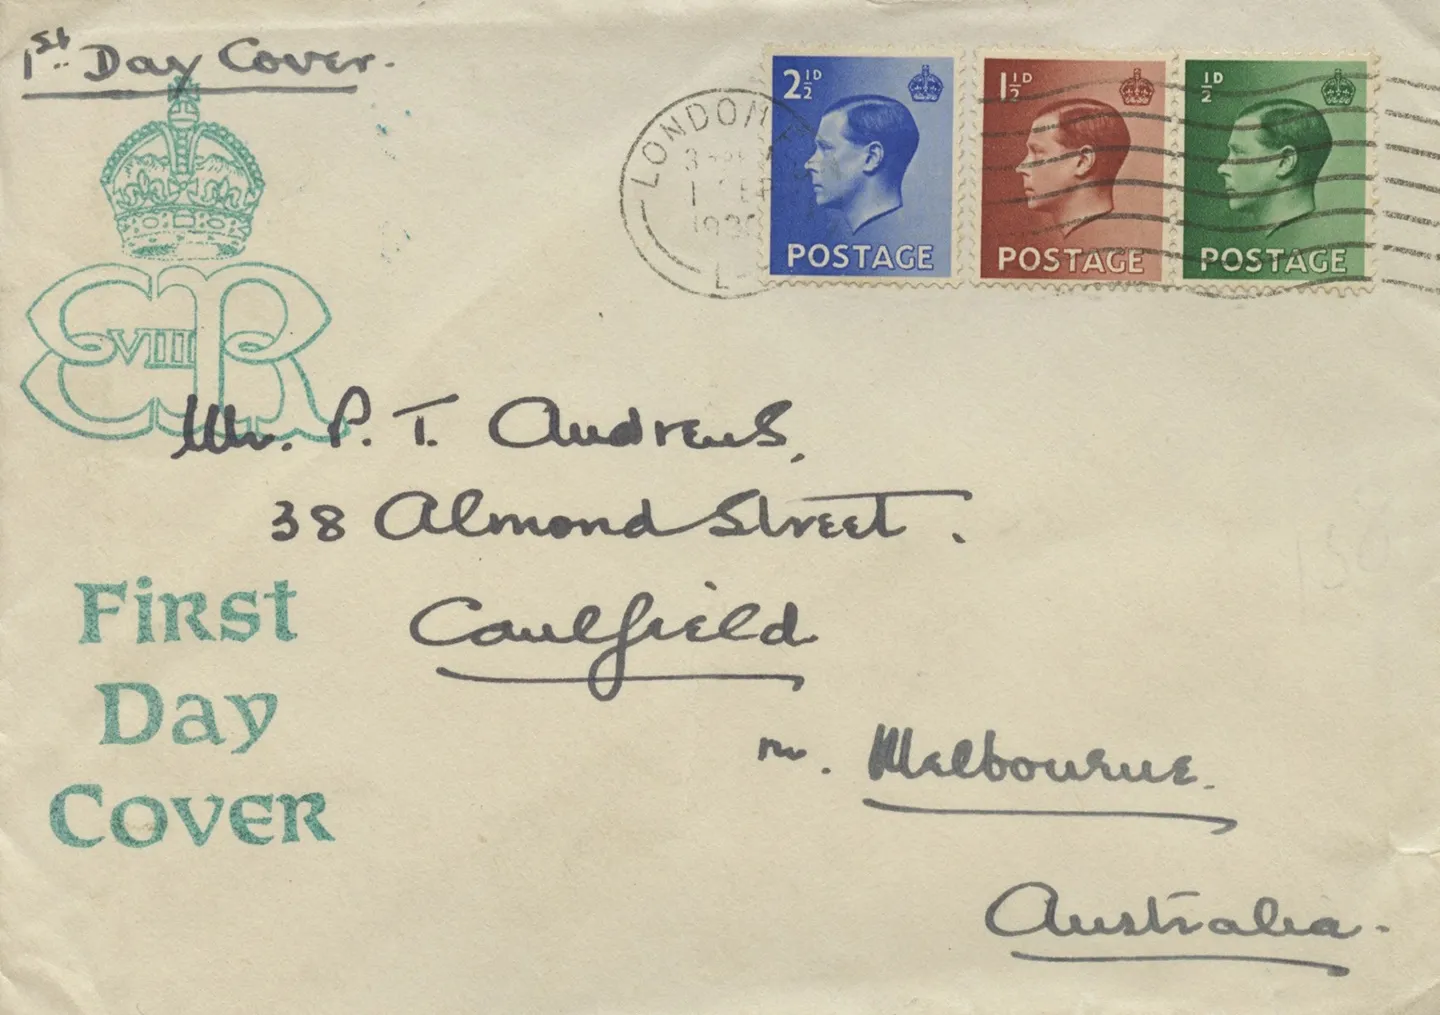 1st. Day Cover.
2½D
1½D
½D
LONDON
1 SEP
1936
POSTAGE
POSTAGE
POSTAGE
E VIII R
Mr. P. T. Andrews,
38 Almond Street.
Caulfield
nr. Melbourne.
Australia.
First
Day
Cover